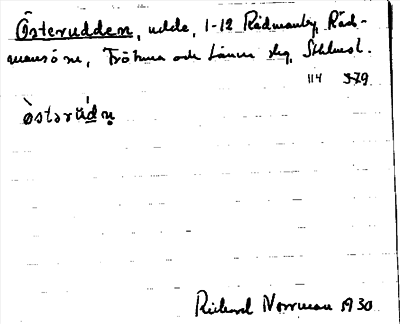 Österudden, udde, 1-12 Rådmanby, Råd-
mansö sn, Frötuna och Länna slg, Sthlmsl.
114 579
ò̀stərúdn̥
Richard Norrman 1930